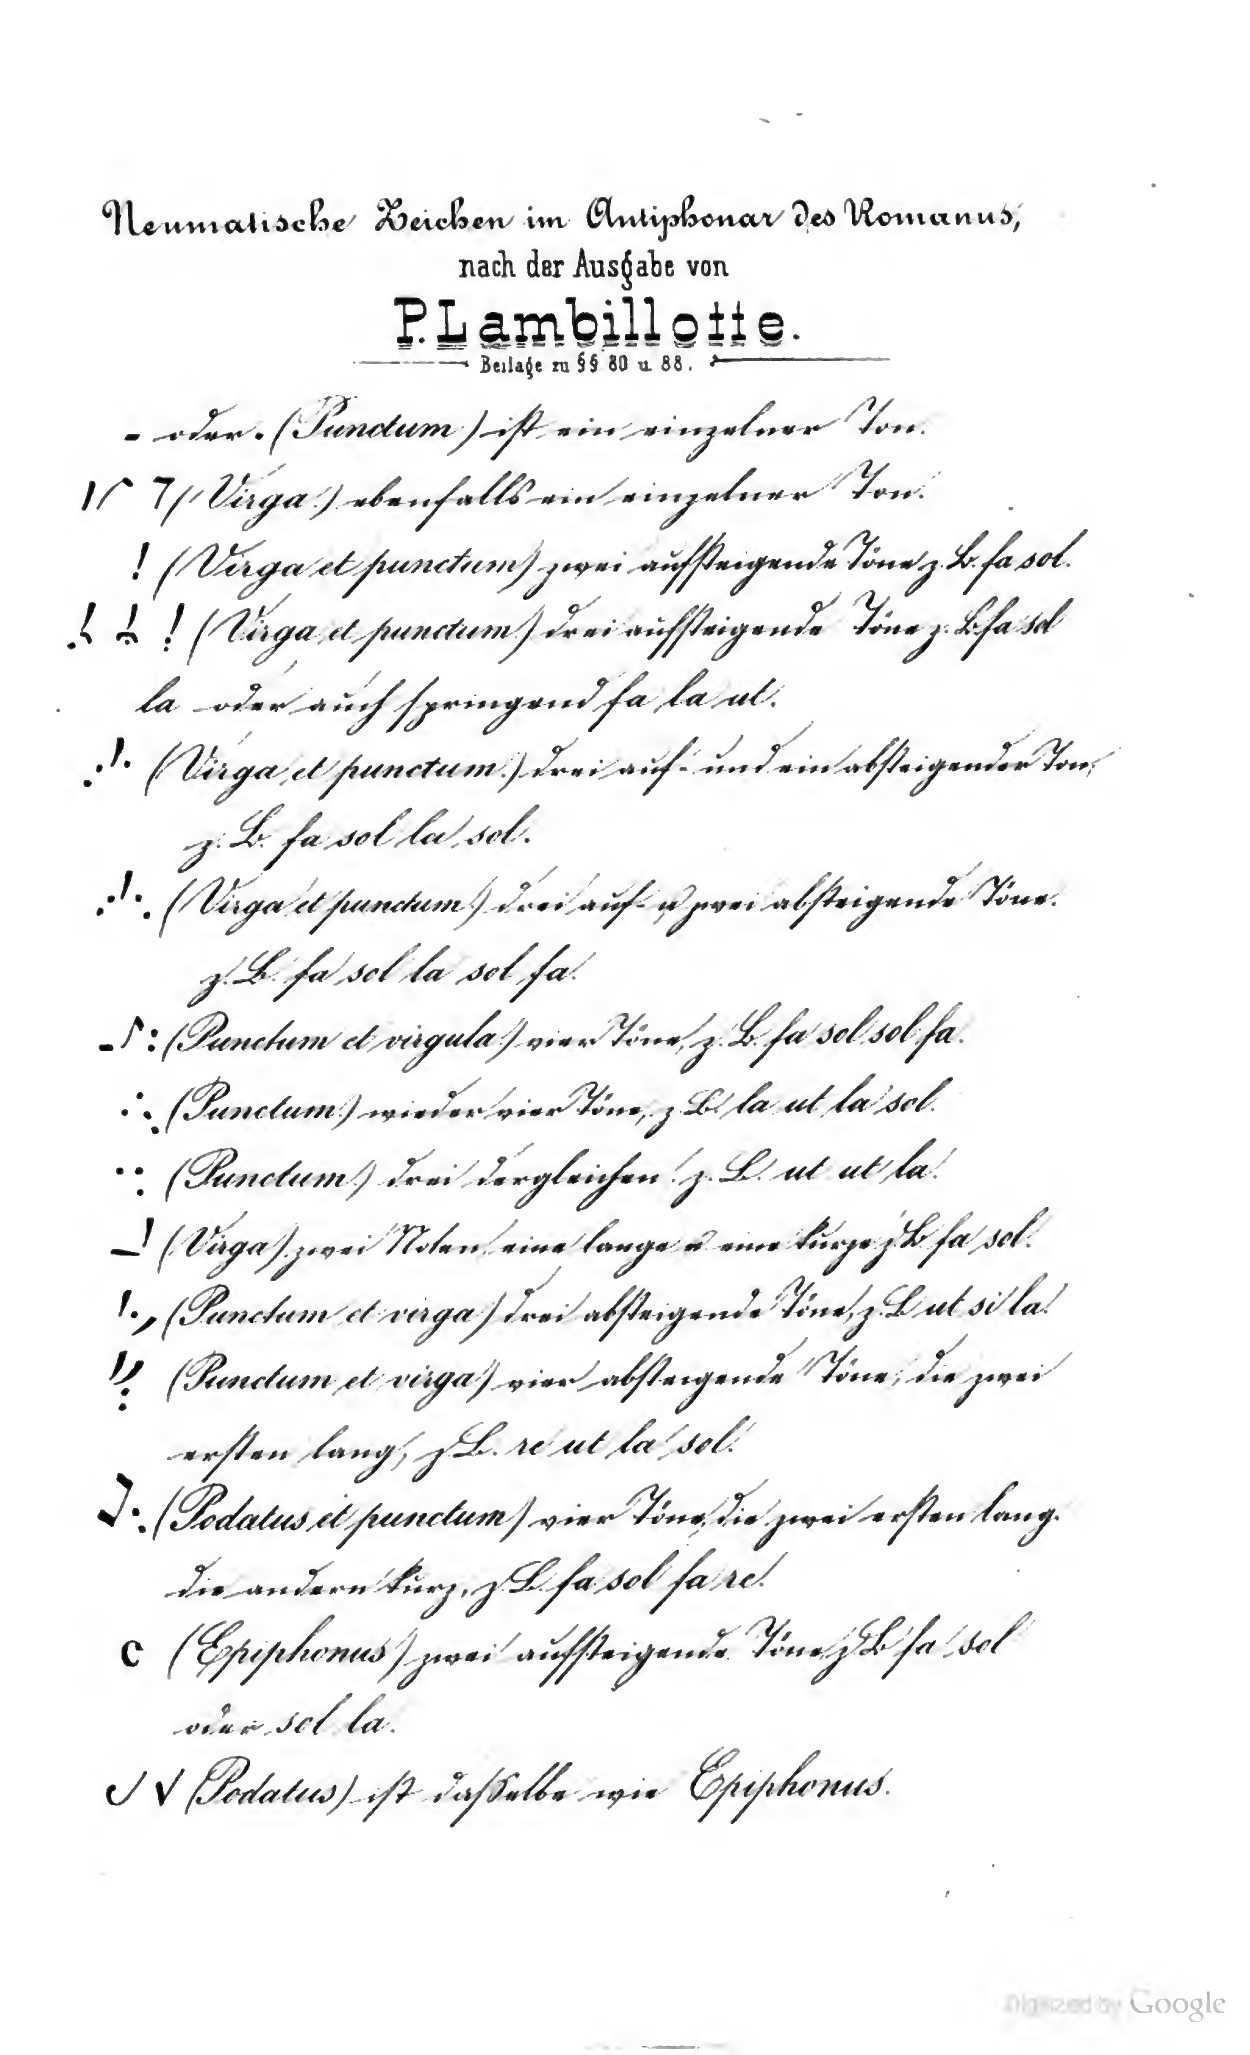 Neumatische Zeichen im Antiphonar des Romanus,
nach der Ausgabe von
P. Lambillotte.
Beilage zu §§ 80 u. 88.
- oder . (Punctum) ist ein einzelner Ton.
(Virga) ebenfalls ein einzelner Ton.
(Virga et punctum) zwei aufsteigende Töne z. B. fa sol.
(Virga et punctum) drei aufsteigende Töne z. B. fa sol
la oder auch springend fa la ut.
(Virga et punctum) drei auf- und ein absteigender Ton,
z. B. fa sol la sol.
(Virga et punctum) drei auf- u zwei absteigende Töne.
z. B. fa sol la sol fa.
(Punctum et virgula) vier Töne, z. B. fa sol sol fa.
(Punctum) wieder vier Töne, z. B. la ut la sol.
(Punctum) drei dergleichen z. B. ut ut la.
(Virga) zwei Noten eine lange u eine kurze z B fa sol.
(Punctum et virga) drei absteigende Töne, z. B ut si la.
(Punctum et virga) vier absteigende Töne, die zwei
ersten lang, z B. re ut la sol.
(Podatus et punctum) vier Töne, die zwei ersten lang.
die andern kurz, z B fa sol fa re.
(Epiphonus) zwei aufsteigende Töne z B fa sol
oder sol la.
(Podatus) ist dasselbe wie Epiphonus.
Digitized by Google